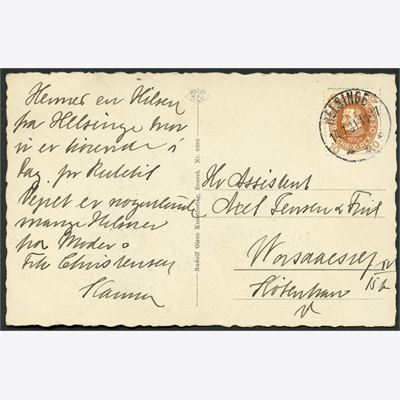 Hermed en Hilsen
fra Helsinge hvor
vi er kørende i
Dag. pr Rutebil
Vejret er nogenlunde
mange Hilsner
fra Moder o
Frk Christensen
Hanne
Rudolf Olsens Kunstforlag, Eneret. Nr. 6880
HELSINGE
10 10
Hr Assistent
Axel Jensen & Frue
Worsaaesvej
15
København
V